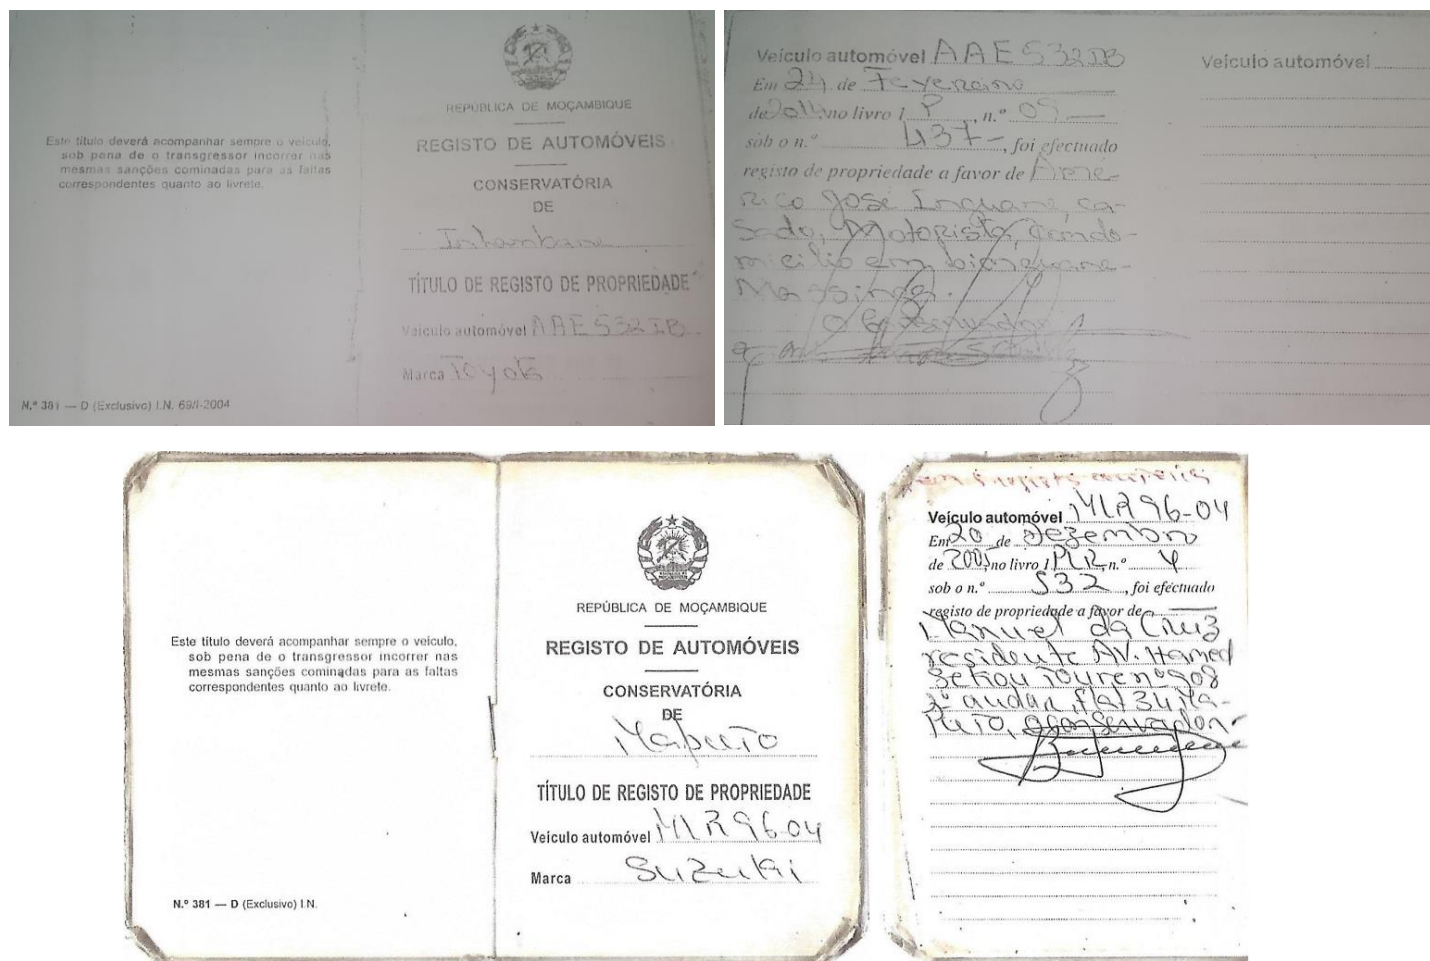 Este título deverá acompanhar sempre o veículo,
sob pena de o transgressor incorrer nas
mesmas sanções cominadas para as faltas
correspondentes quanto ao livrete.
N.º 381 — D (Exclusivo) I.N. 69/I-2004
REPÚBLICA DE MOÇAMBIQUE
REGISTO DE AUTOMÓVEIS
CONSERVATÓRIA
DE
Inhambane
TÍTULO DE REGISTO DE PROPRIEDADE
Veículo automóvel AAE 532 IB
Marca Toyota
Veículo automóvel AAE 532 IB
Em 24 de Fevereiro
de 2014, no livro 1 P, n.º 09
sob o n.º 437-, foi efectuado
registo de propriedade a favor de Amé-
rico José Inguane, ca-
sado, Motorista, com do-
micilio em
Massinga.
O Conservador
Veículo automóvel
Este título deverá acompanhar sempre o veículo,
sob pena de o transgressor incorrer nas
mesmas sanções cominadas para as faltas
correspondentes quanto ao livrete.
N.º 381 — D (Exclusivo) I.N.
REPÚBLICA DE MOÇAMBIQUE
REGISTO DE AUTOMÓVEIS
CONSERVATÓRIA
DE
Maputo
TÍTULO DE REGISTO DE PROPRIEDADE
Veículo automóvel MLR 96-04
Marca Suzuki
Veículo automóvel MLR 96-04
Em 20 de Dezembro
de 2001, no livro 1 MLR, n.º 4
sob o n.º 532, foi efectuado
registo de propriedade a favor de
Manuel da Cruz
residente AV. Hamed
Sekou Toure nº 908
2º andar, flat 34, Ma-
puto, O Conservador